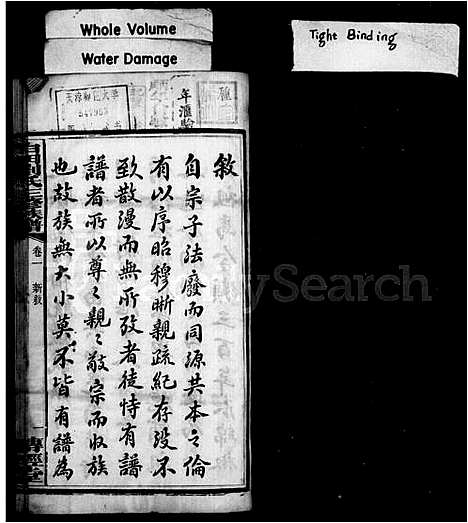 Whole Volume
Water Damage
Tight Binding
敘
自宗子法廢而同源共本之倫
有以序昭穆晰親疏紀存沒不
致散漫而無所攷者徒恃有譜
譜者所以尊尊親親敬宗而收族
也故族無大小莫不皆有譜為
氏三修族譜
卷一
新敘
一
傳經堂
FamilySearch